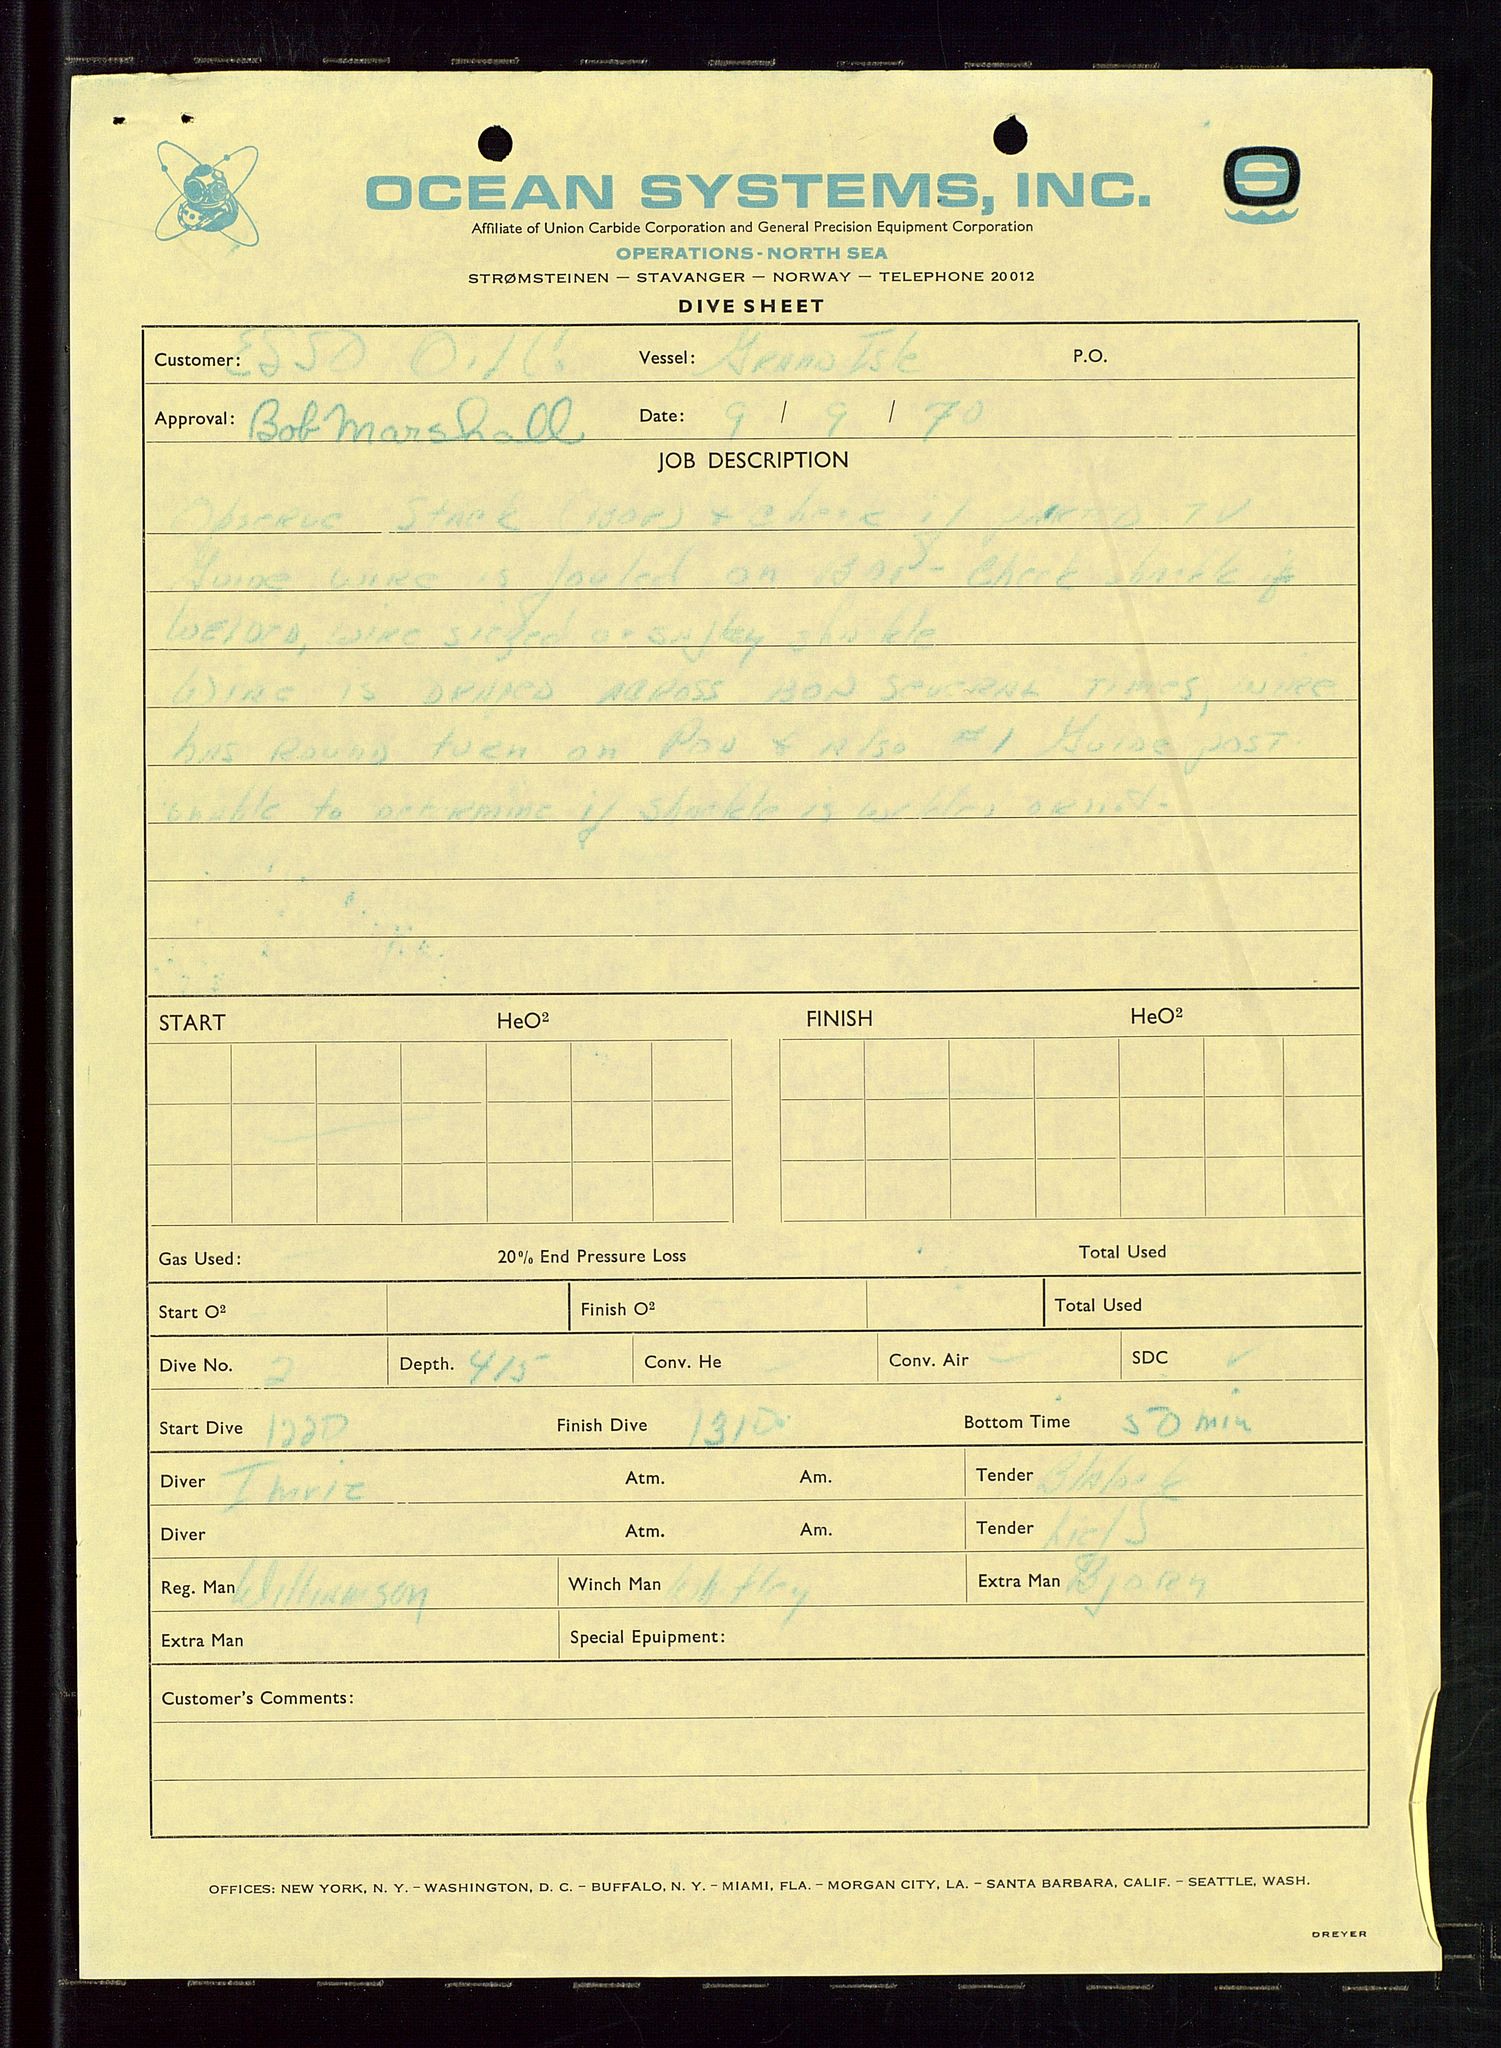 OCEAN SYSTEMS, INC.
Affiliate of Union Carbide Corporation and General Precision Equipment Corporation
OPERATIONS - NORTH SEA
STRØMSTEINEN — STAVANGER — NORWAY — TELEPHONE 20012
DIVE SHEET
Customer: ESSO Oil Co. Vessel: Grand Isle P.O.
Approval: Bob Marshall Date: 9 / 9 / 70
JOB DESCRIPTION
Observe Stack (BOP) & check if parted TV
Guide wire is fouled on BOP - Check shackle if
welded, wire siezed or saftey shackle
Wire is draped across BOP several times, wire
has round turn on Pod & also #1 Guide post.
unable to determine if shackle is welded or not-
START HeO² FINISH HeO²
Gas Used: 20% End Pressure Loss Total Used
Start O² Finish O² Total Used
Dive No. 2 Depth. 415 Conv. He — Conv. Air — SDC ✓
Start Dive 1220 Finish Dive 1310 Bottom Time 50 min
Diver Imrie Atm. Am. Tender Blalock
Diver Atm. Am. Tender
Reg. Man Williamson Winch Man Extra Man Bjorn
Extra Man Special Epuipment:
Customer's Comments:
OFFICES: NEW YORK, N. Y. – WASHINGTON, D. C. – BUFFALO, N. Y. – MIAMI, FLA. – MORGAN CITY, LA. – SANTA BARBARA, CALIF. – SEATTLE, WASH.
DREYER